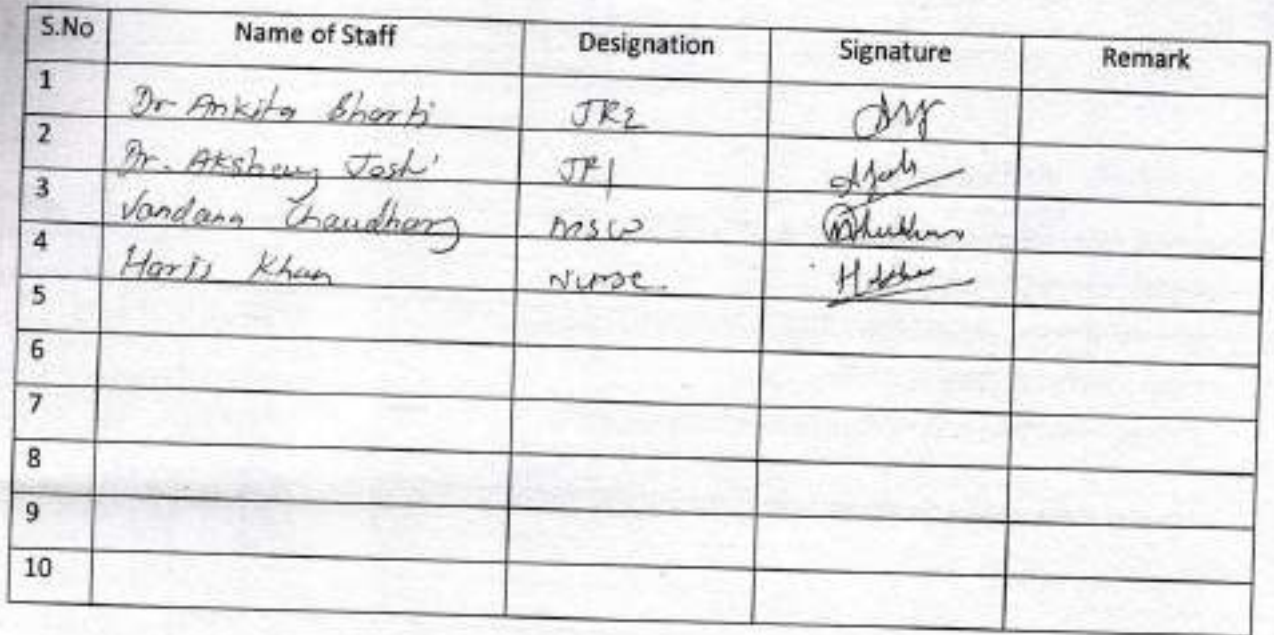 S.No Name of Staff Designation Signature Remark
1 Dr Ankita Bharti JR2
2 Dr. Akshay Joshi JR1
3 Vandana Chaudhary MSW
4 Haris Khan Nurse
5
6
7
8
9
10